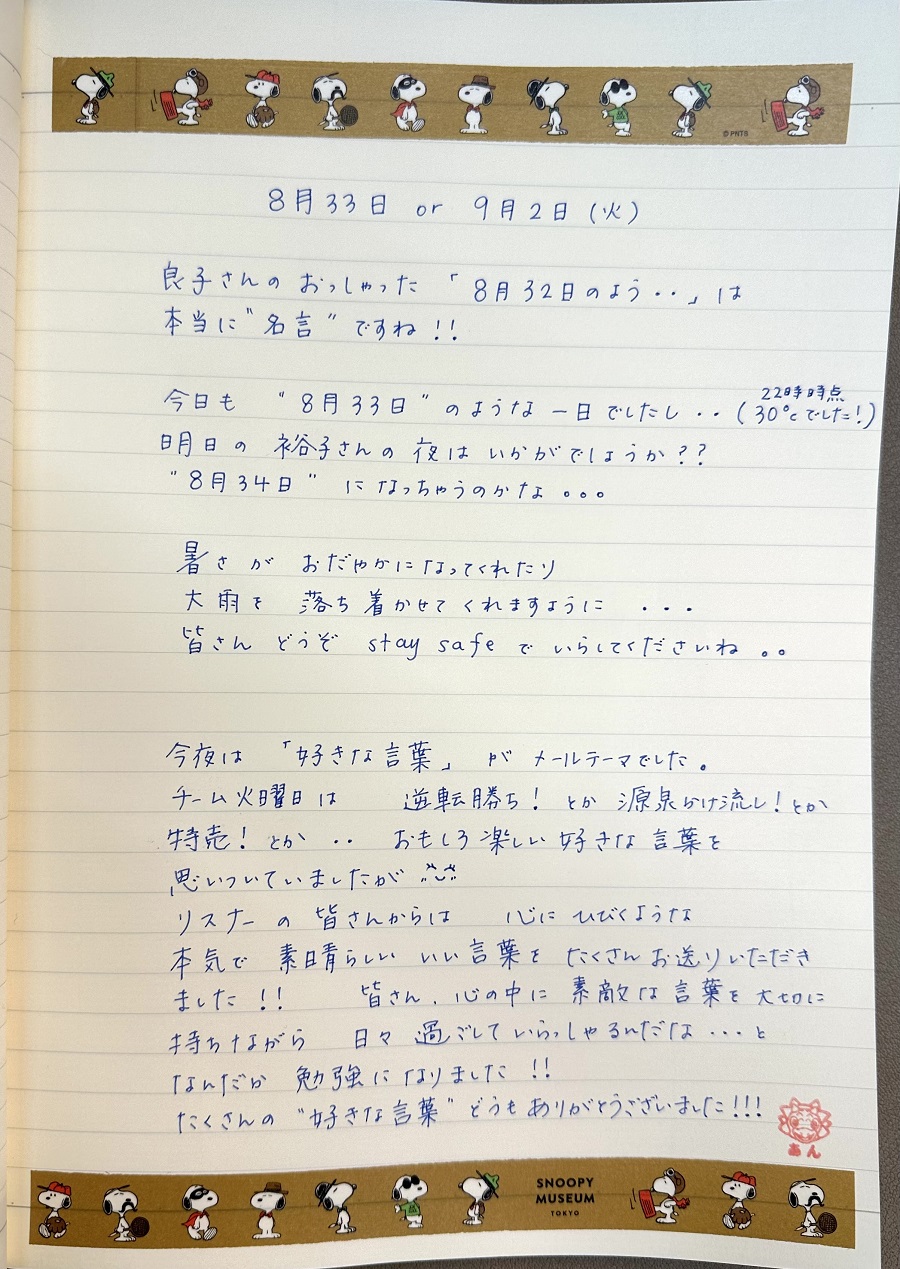 © PNTS
8月33日 or 9月2日(火)
良子さんの おっしゃった 「8月32日のよう・・」は
本当に"名言"ですね!!
22時時点
今日も "8月33日"のような 一日でしたし・・(30℃でした!)
明日の 裕子さんの 夜は いかがでしょうか??
"8月34日" に なっちゃうのかな。。。
暑さが おだやかに なってくれたり
大雨を 落ち着かせて くれますように ・・・
皆さん どうぞ stay safe で いらしてくださいね 。。
今夜は 「好きな言葉」 が メールテーマでした。
チーム火曜日は 逆転勝ち! とか 源泉かけ流し!とか
特売! とか ・・ おもしろ楽しい 好きな 言葉を
思いついていましたが
リスナーの 皆さんからは 心に ひびくような
本気で 素晴らしい いい言葉を たくさん お送りいただき
ました!! 皆さん、心の中に 素敵な 言葉を 大切に
持ちながら 日々 過ごして いらっしゃるんだな・・・と
なんだか 勉強に なりました !!
たくさんの "好きな言葉" どうも ありがとうございました!!!
あん
SNOOPY
MUSEUM
TOKYO